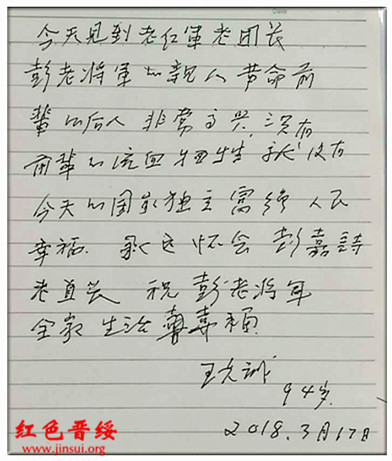 今天见到老红军老团长
彭老将军的亲人革命前
辈的后人非常高兴,没有
前辈的流血牺牲就没有
今天的国家独立富强人民
幸福.永远怀念彭嘉诗
老首长 祝彭老将军
全家生活幸福
王
94岁.
2018.3月17日
红色晋绥
www.jinsui.org